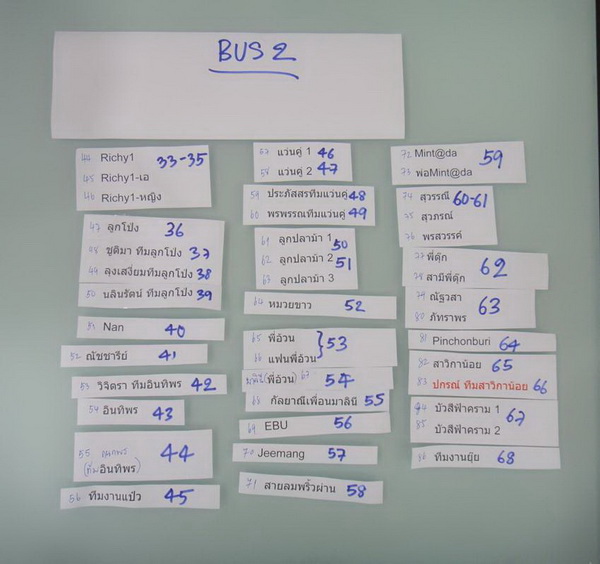 BUS 2
44 Richy1 33-35
45 Richy1-เอ
46 Richy1-หญิง
47 ลูกโป่ง 36
48 ชุติมา ทีมลูกโป่ง 37
49 ลุงเสงี่ยมทีมลูกโป่ง 38
50 นลินรัตน์ ทีมลูกโป่ง 39
51 Nan 40
52 ณัชชารีย์ 41
53 วิจิตรา ทีมอินทิพร 42
54 อินทิพร 43
55
(ทีมอินทิพร) 44
56 ทีมงานแป๋ว 45
57 แว่นคู่ 1 46
58 แว่นคู่ 2 47
59 ประภัสสรทีมแว่นคู่ 48
60 พรพรรณทีมแว่นคู่ 49
61 ลูกปลาม้า 1 50
62 ลูกปลาม้า 2 51
63 ลูกปลาม้า 3
64 หมวยขาว 52
65 พี่อ้วน 53
66 แฟนพี่อ้วน
(พี่อ้วน) 67 54
68 กัลยาณีเพื่อนมาลินี 55
69 EBU 56
70 Jeemang 57
71 สายลมพริ้วผ่าน 58
72 Mint@da 59
73 พ่อMint@da
74 สุวรรณี 60-61
75 สุวภรณ์
76 พรสวรรค์
77 พี่ตุ๊ก 62
78 สามีพี่ตุ๊ก
79 ณัฐวสา 63
80 ภัทราพร
81 Pinchonburi 64
82 สาวิกาน้อย 65
83 ปกรณ์ ทีมสาวิกาน้อย 66
84 บัวสีฟ้าคราม 1 67
85 บัวสีฟ้าคราม 2
86 ทีมงานยุ้ย 68